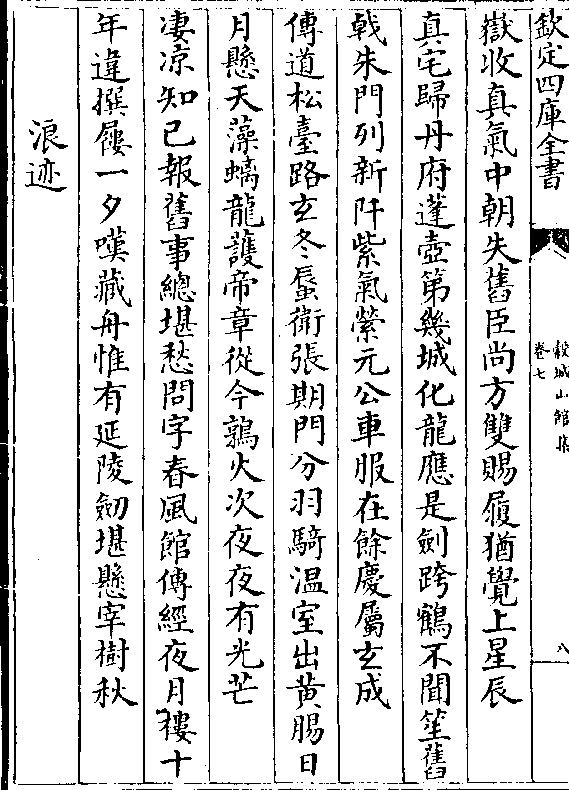 欽定四庫全書
穀城山館集
卷七
八
嶽收真氣中朝失舊臣尚方雙賜履猶覺上星辰
真宅歸丹府蓬壺第幾城化龍應是劍跨鶴不聞笙舊
戟朱門列新阡紫氣縈元公車服在餘慶屬玄成
傳道松臺路玄冬蜃衛張期門分羽騎溫室出黃腸日
月懸天藻螭龍護帝章從今鶉火次夜夜有光芒
凄凉知已報舊事總堪愁問字春風館傳經夜月樓十
年違撰屨一夕嘆藏舟惟有延陵劒堪懸宰樹秋
浪迹